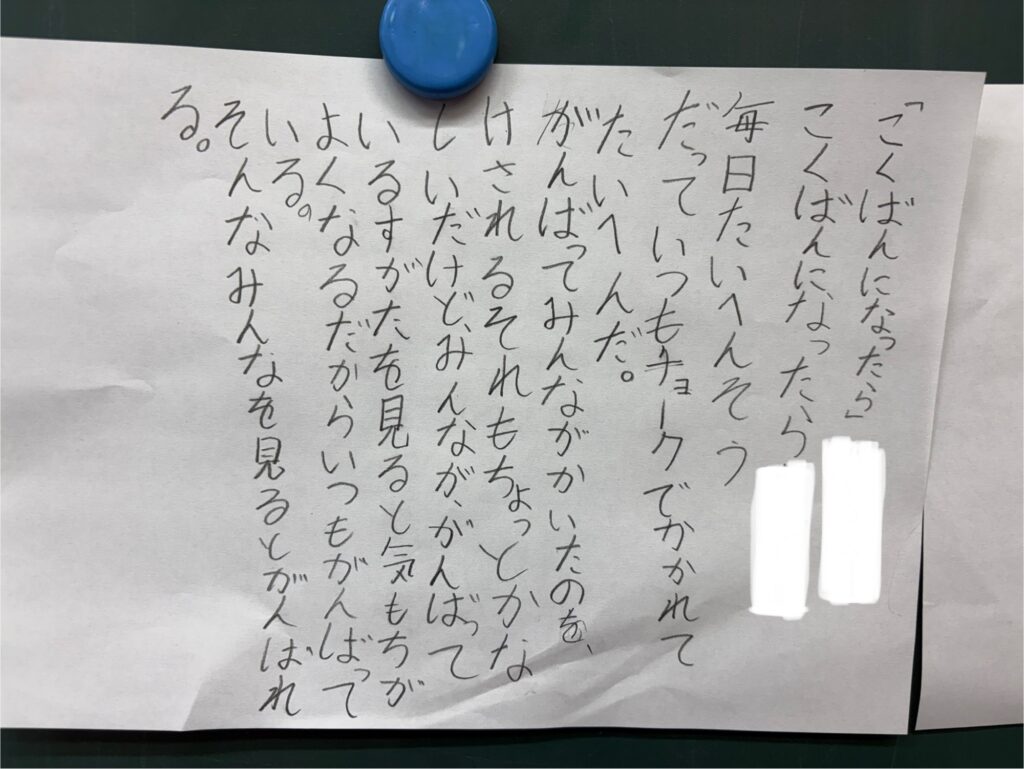 「こくばんになったら」
こくばんになったら
毎日たいへんそう
だっていつもチョークでかかれて
たいへんだ。
がんばってみんながかいたのを、
けされるそれもちょっとかな
しいだけど、みんなが、がんばって
いるすがたを見ると気もちが
よくなるだからいつもがんばって
いる。
そんなみんなを見るとがんばれ
る。